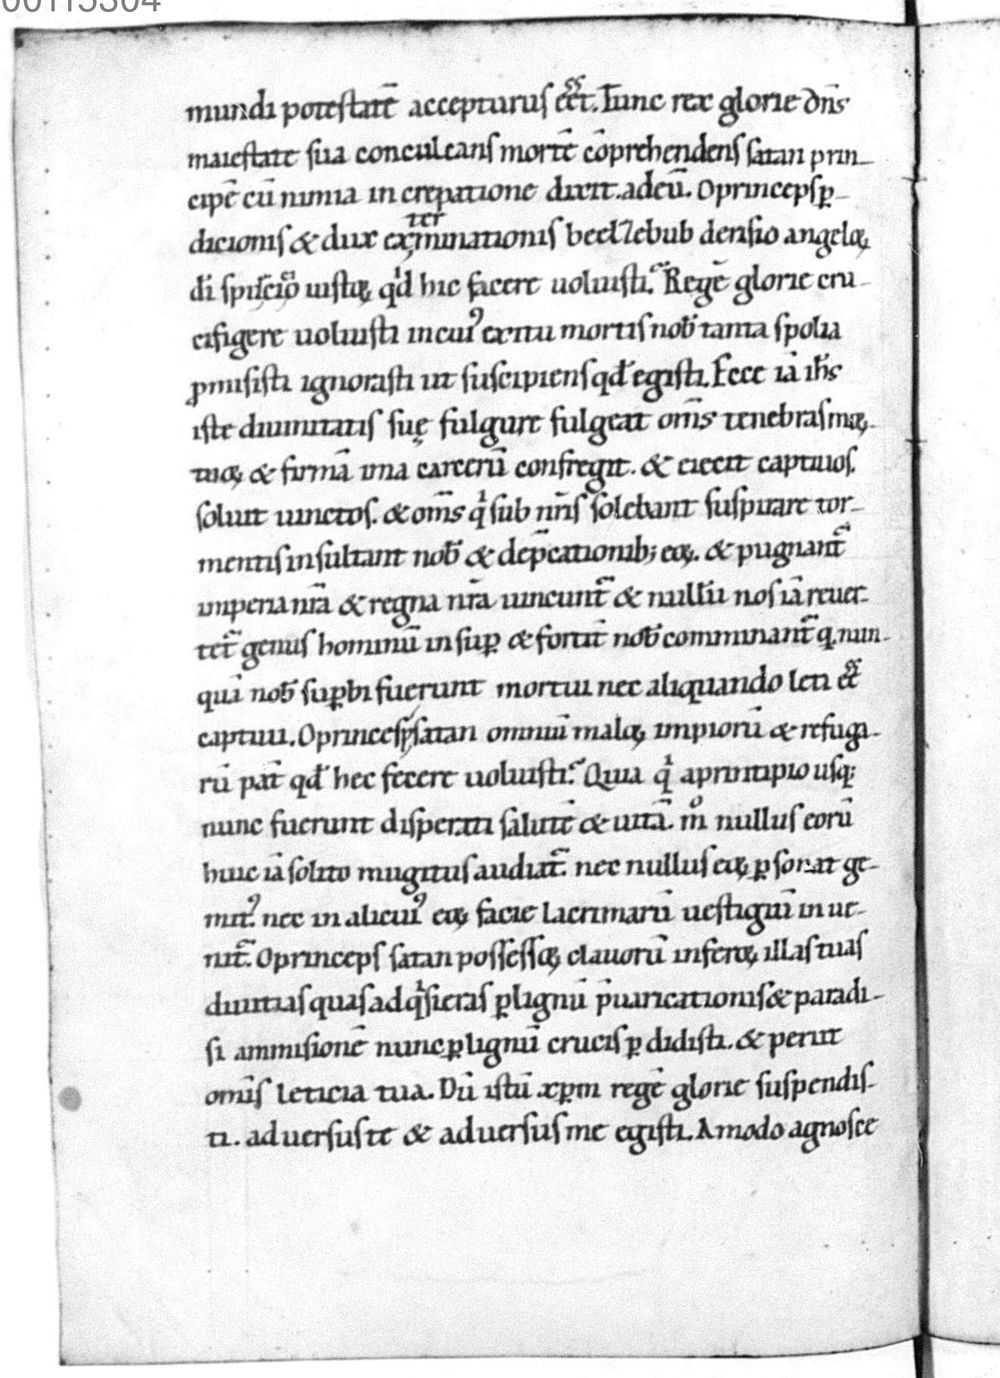 00115304
mundi potestatē accepturus eēt. Tunc rex glorie dn̄s
maiestate sua conculcans mortē cōprehendens satan prin
cipē cū nimia increpatione dixit. ad eū. O princeps ꝑ
dicionis & dux exterminationis beelzebub derisio angeloꝝ
iustoꝝ qd hic facere uoluisti. Regē glorie cru
cifigere uoluisti in cui᾿ exitu mortis nob̄ tanta spolia
ꝓmisisti ignorasti ut suscipiens qd egisti. Ecce iā ih̄s
iste diuinitatis suę fulgure fulgeat om̄s tenebras
& firmā ima carcerū confregit. & eiecit captiuos.
soluit uinctos. & om̄s qi sub nr̄is solebant suspirare tor
mentis insultant nob̄ & dep̄cationib; eoꝝ. & pugnant̄
imperia nr̄a & regna nr̄a uincunt̄ & null̄ū nos iā reuer
tet̄ genus hominū insuꝑ & fortit̄ nob̄ comminant̄ q. nun
quā nob̄ suꝑbi fuerunt mortui nec aliquando leti
captiui. O princeps satan omniū maloꝝ impiorū & refuga
rū pat̄ qd hec fecere uoluisti. Quia qi a principio usq;
nunc fuerunt disperati salutē & uitā. mo nullus eorū
huic iā solito mugitus audiat̄. nec nullus eoꝝ ꝑsonat ge
mit᾿. nec in alicui᾿ eoꝝ facie lacrimarū uestigiū inue
nit̄. O princeps satan possessoꝝ clauorū inferoꝝ illas tuas
diuitias quas adqisieras ꝑ lignū p̄uaricationis & paradi
si ammisionē nunc ꝑ lignū crucis ꝑdidisti. & periit
om̄is leticia tua. Dū istū xp̄m regē glorie suspendis
ti. aduersus te & aduersus me egisti. Amodo agnosce